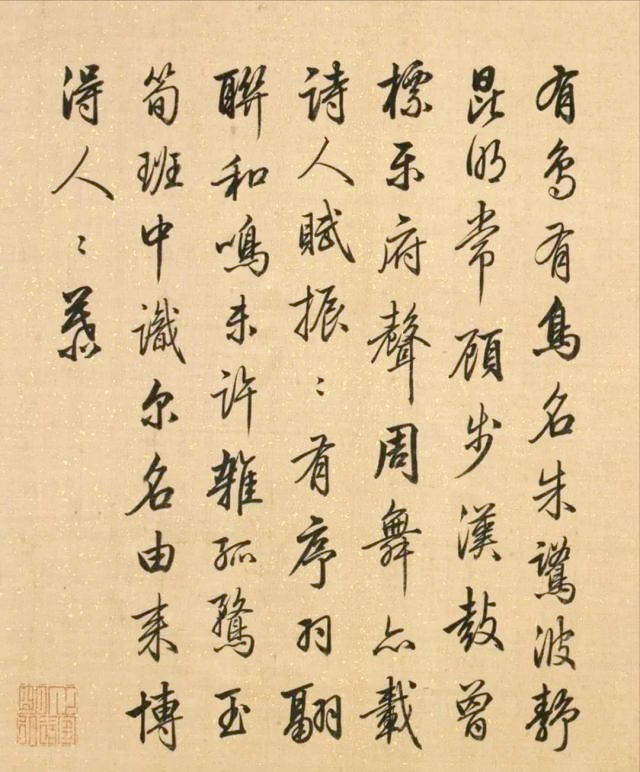 有鳥有鳥名朱鷺波靜
昆明常顧步漢鼓曾
標乐府聲周舞亦載
詩人賦振〻有序羽翩
聯和鳴未許雜孤鶩玉
筍班中識尔名由来博
得人〻慕